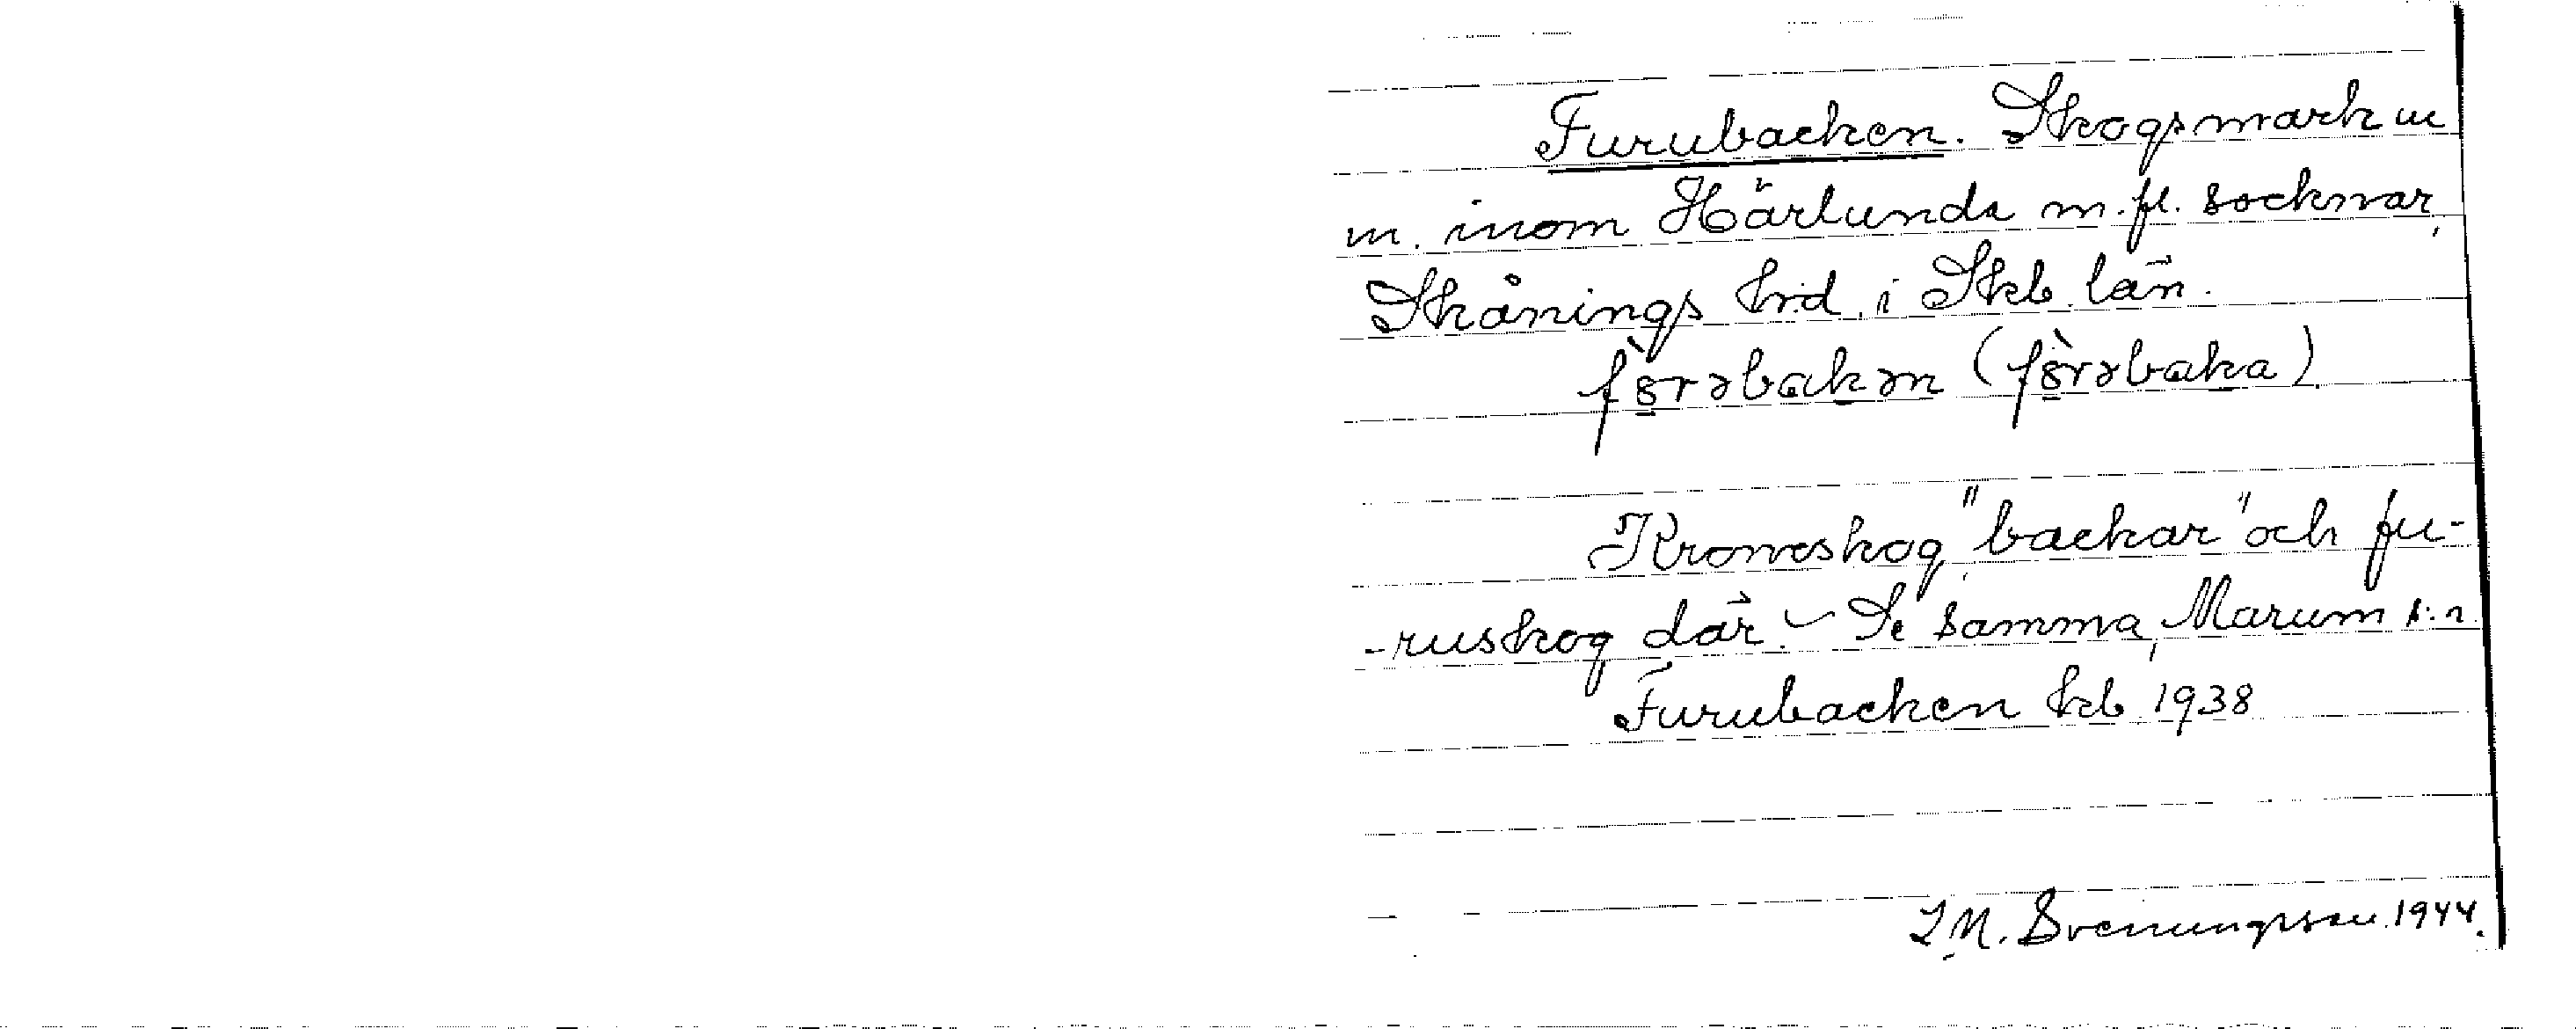 Furubacken. Skogsmark m
m. inom Härlunda m.fl. socknar,
Skånings hrd. i Skb. län.
fòrəbakən (fòrəbaka).
Kronoskog, "backar" och fu-
-ruskog där. - Se samma, Marum s:n.
Furubacken kb. 1938
I M. Svenungsson. 1944.